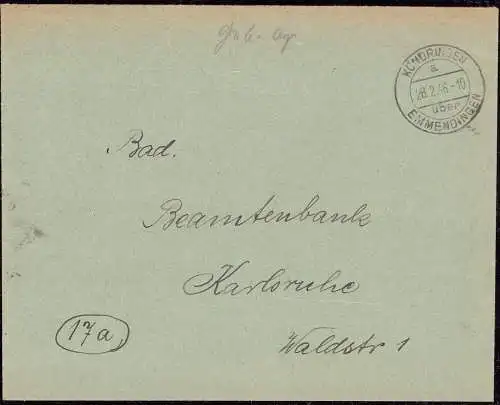 KÖNDRINGEN
a
28.2.46-10
über
EMMENDINGEN
Bad.
Beamtenbank
Karlsruhe
17a
Waldstr 1